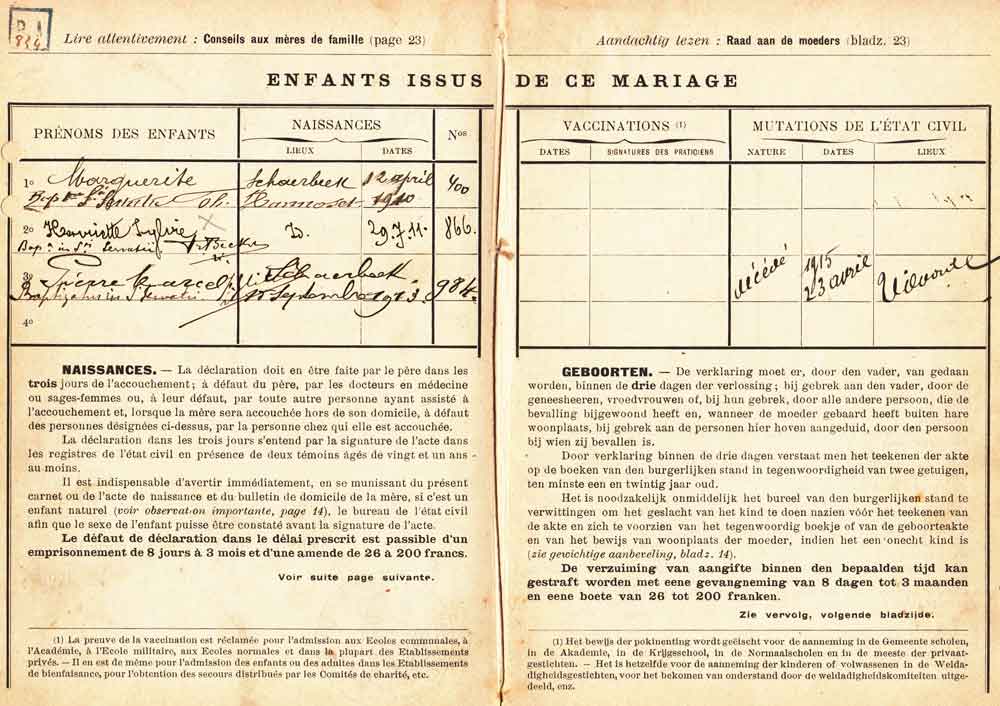 Lire attentivement : Conseils aux mères de famille (page 23)
Aandachtig lezen : Raad aan de moeders (bladz. 23)
ENFANTS ISSUS DE CE MARIAGE
PRÉNOMS DES ENFANTS
NAISSANCES
LIEUX
DATES
Nos
VACCINATIONS (1)
DATES
SIGNATURES DES PRATICIENS
MUTATIONS DE L'ÉTAT CIVIL
NATURE
DATES
LIEUX
1o Marguerite Schaerbeek 12 april 400
1910
2o Henriette Sylvie D. 29.7.11. 866.
Bap. in St Servatii
3o Pierre Marcel Schaerbeek 984.
in St Servatii 15 Septembre 1913
décédé 1915
23 avril Vilvorde
4o
NAISSANCES. — La déclaration doit en être faite par le père dans les
trois jours de l'accouchement ; à défaut du père, par les docteurs en médecine
ou sages-femmes ou, à leur défaut, par toute autre personne ayant assisté à
l'accouchement et, lorsque la mère sera accouchée hors de son domicile, à défaut
des personnes désignées ci-dessus, par la personne chez qui elle est accouchée.
La déclaration dans les trois jours s'entend par la signature de l'acte dans
les registres de l'état civil en présence de deux témoins âgés de vingt et un ans
au moins.
Il est indispensable d'avertir immédiatement, en se munissant du présent
carnet ou de l'acte de naissance et du bulletin de domicile de la mère, si c'est un
enfant naturel (voir observat on importante, page 14), le bureau de l'état civil
afin que le sexe de l'enfant puisse être constaté avant la signature de l'acte.
Le défaut de déclaration dans le délai prescrit est passible d'un
emprisonnement de 8 jours à 3 mois et d'une amende de 26 à 200 francs.
Voir suite page suivante.
(1) La preuve de la vaccination est réclamée pour l'admission aux Ecoles communales, à
l'Académie, à l'Ecole militaire, aux Ecoles normales et dans la plupart des Etablissements
privés. — Il en est de même pour l'admission des enfants ou des adultes dans les Etablissements
de bienfaisance, pour l'obtention des secours distribués par les Comités de charité, etc.
GEBOORTEN. — De verklaring moet er, door den vader, van gedaan
worden, binnen de drie dagen der verlossing ; bij gebrek aan den vader, door de
geneesheeren, vroedvrouwen of, bij hun gebrek, door alle andere persoon, die de
bevalling bijgewoond heeft en, wanneer de moeder gebaard heeft buiten hare
woonplaats, bij gebrek aan de personen hier hoven aangeduid, door den persoon
bij wien zij bevallen is.
Door verklaring binnen de drie dagen verstaat men het teekenen der akte
op de boeken van den burgerlijken stand in tegenwoordigheid van twee getuigen,
ten minste een en twintig jaar oud.
Het is noodzakelijk onmiddelijk het bureel van den burgerlijken stand te
verwittingen om het geslacht van het kind te doen nazien vóór het teekenen van
de akte en zich te voorzien van het tegenwoordig boekje of van de geboorteakte
en van het bewijs van woonplaats der moeder, indien het een onecht kind is
(zie gewichtige aanbeveling, bladz. 14).
De verzuiming van aangifte binnen den bepaalden tijd kan
gestraft worden met eene gevangneming van 8 dagen tot 3 maanden
en eene boete van 26 tot 200 franken.
Zie vervolg, volgende bladzijde.
(1) Het bewijs der pokinenting wordt geëischt voor de aanneming in de Gemeente scholen,
in de Akademie, in de Krijgsschool, in de Normaalscholen en in de meeste der privaat-
gestichten. — Het is hetzelfde voor de aanneming der kinderen of volwassenen in de Welda-
digheidsgestichten, voor het bekomen van onderstand door de weldadigheidskomiteiten uitge-
deeld, enz.